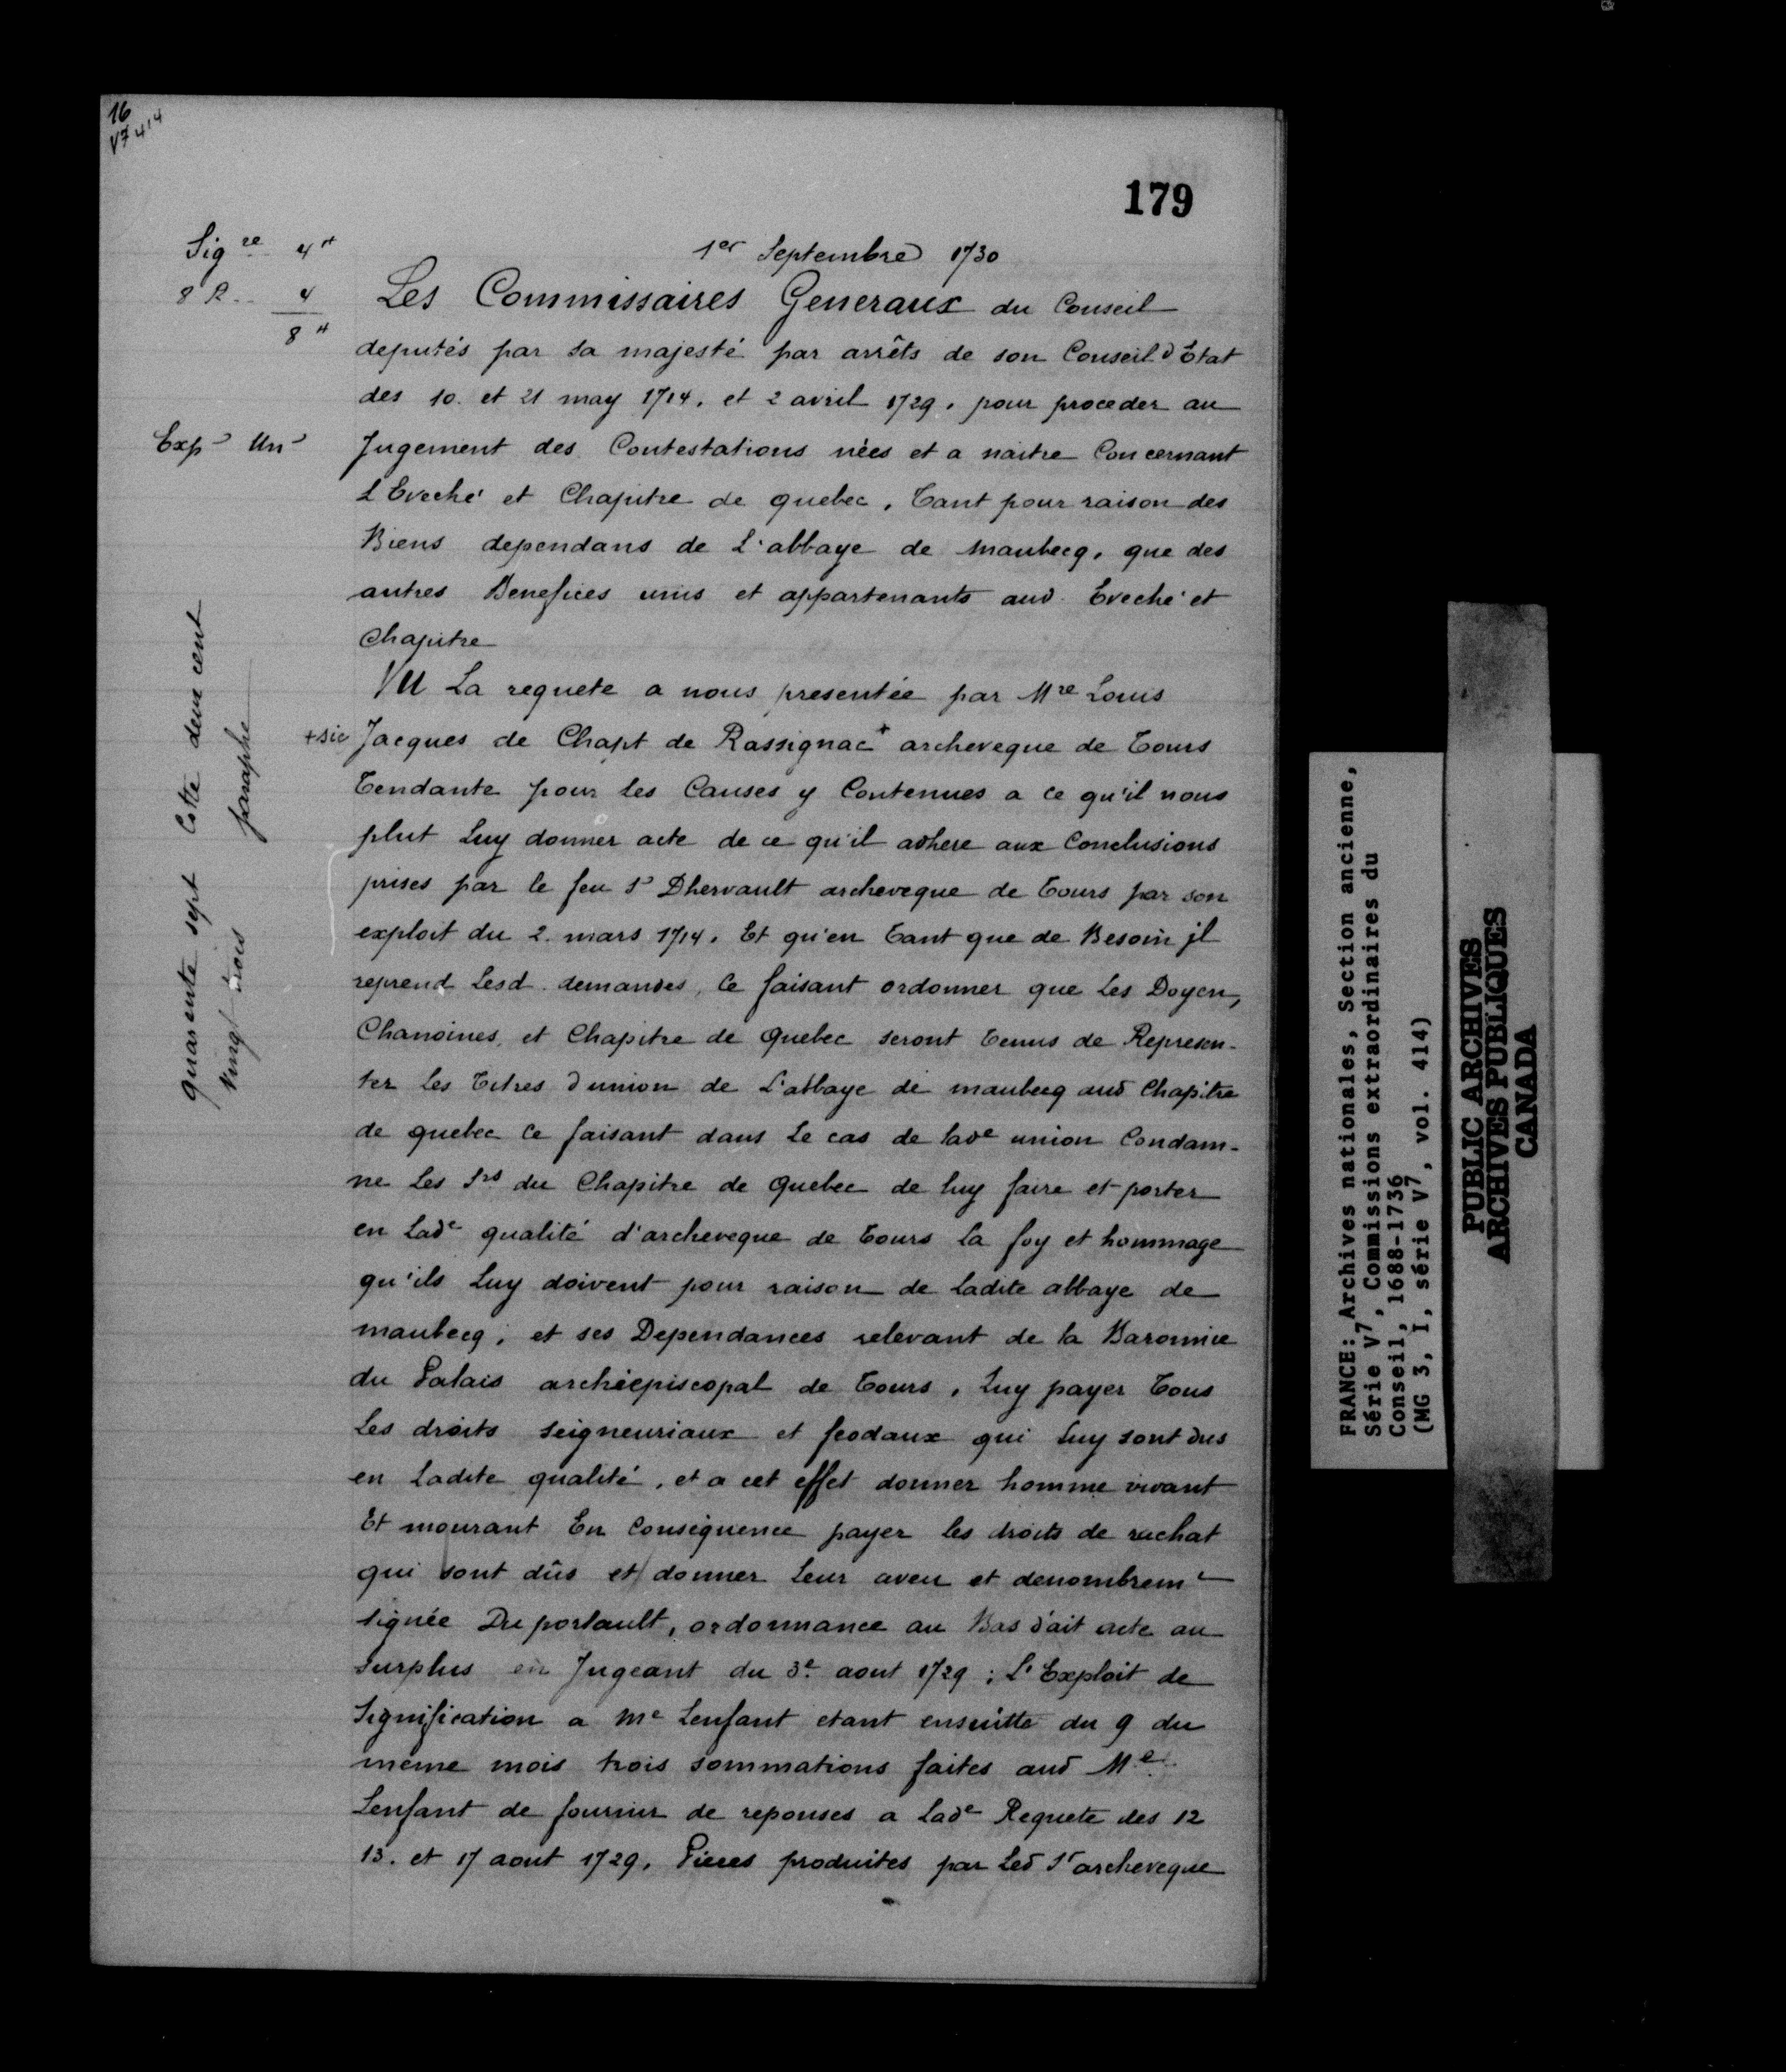 16
V7 414
179
Sigre 4tt
8 R. 4
8tt
1er Septembre 1730
Les Commissaires Generaux du Conseil
deputés par sa majesté par arrêts de son Conseil d'Etat
des 10. et 21 may 1714. et 2 avril 1729. pour proceder au
Exp Un
Jugement des Contestations nées et a naitre Concernant
L'Eveché et Chapitre de quebec, Tant pour raison des
Biens dependans de L'abbaye de maubecq, que des
autres Benefices unis et appartenants aud. Eveché et
Chapitre
VU La requete a nous presentée par Mre Louis
+sic Jacques de Chapt de Rassignac+ archeveque de Tours
Tendante pour les Causes y Contenues a ce qu'il nous
plut Luy donner acte de ce qu'il adhere aux Conclusions
prises par le feu Sr Dhervault archeveque de Tours par son
exploit du 2. mars 1714. Et qu'en Tant que de Besoin jl
reprend Lesd. demandes, Ce faisant ordonner que Les Doyen,
Chanoines, et Chapitre de Quebec seront Tenus de Represen-
ter les Titres d'union de L'abbaye de maubecq aud Chapitre
de quebec Ce faisant dans Le cas de lade union Condam-
ne Les Srs du Chapitre de Quebec de luy faire et porter
en Lade qualité d'archeveque de Tours la foy et hommage
qu'ils Luy doivent pour raison de ladite abbaye de
maubecq, et ses Dependances relevant de la Baronnie
du Palais archiepiscopal de Tours, Luy payer Tous
Les droits seigneuriaux et feodaux qui Luy sont dus
en Ladite qualité, et a cet effet donner homme vivant
Et mourant En Conséquence payer les droits de rachat
qui sont dûs et donner Leur aveu et denombremt
signée Duportault, ordonnance au Bas d'ait acte au
surplus en Jugeant du 3e aout 1729; L'Exploit de
Signification a Me Lenfant etant ensuitte du 9 du
même mois trois sommations faites aud Me
Lenfant de fournir de reponses a Lade Requete des 12
13. et 17 aout 1729, Pieces produites par Led Sr archeveque
quarente sept Cotte deux cent
vingt trois paraphe
FRANCE: Archives nationales, Section ancienne,
Série V7, Commissions extraordinaires du
Conseil, 1688-1736
(MG 3, I, série V7, vol. 414)
PUBLIC ARCHIVES
ARCHIVES PUBLIQUES
CANADA